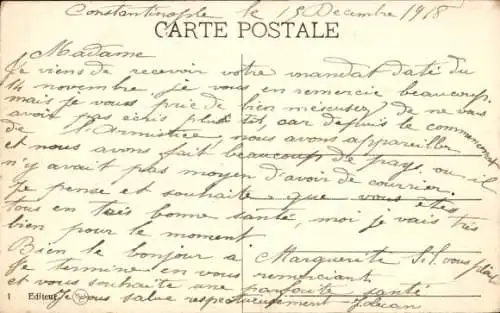 Constantinople le 15 Decembre 1918
CARTE POSTALE
Madame
Je viens de recevoir votre mandat daté du
14 novembre. je vous en remercie beaucoup.
mais je vous prie de bien m'escusez de ne vous
avoir pas écris plutôt, car depuis le commencement
de l'Armistice, nous avons appareiller
et nous avons fait beaucoup de pays, ou il
n'y avait pas moyen d'avoir de courrier.
Je pense et souhaite, que vous êtes
tous en très bonne santé, moi je vais très
bien pour le moment
Bien le bonjour a Marguerite S.il vous plait
Je termine en vous remerciant
et vous souhaite une parfaite santé
1 Editeur Je vous salue respectueusement